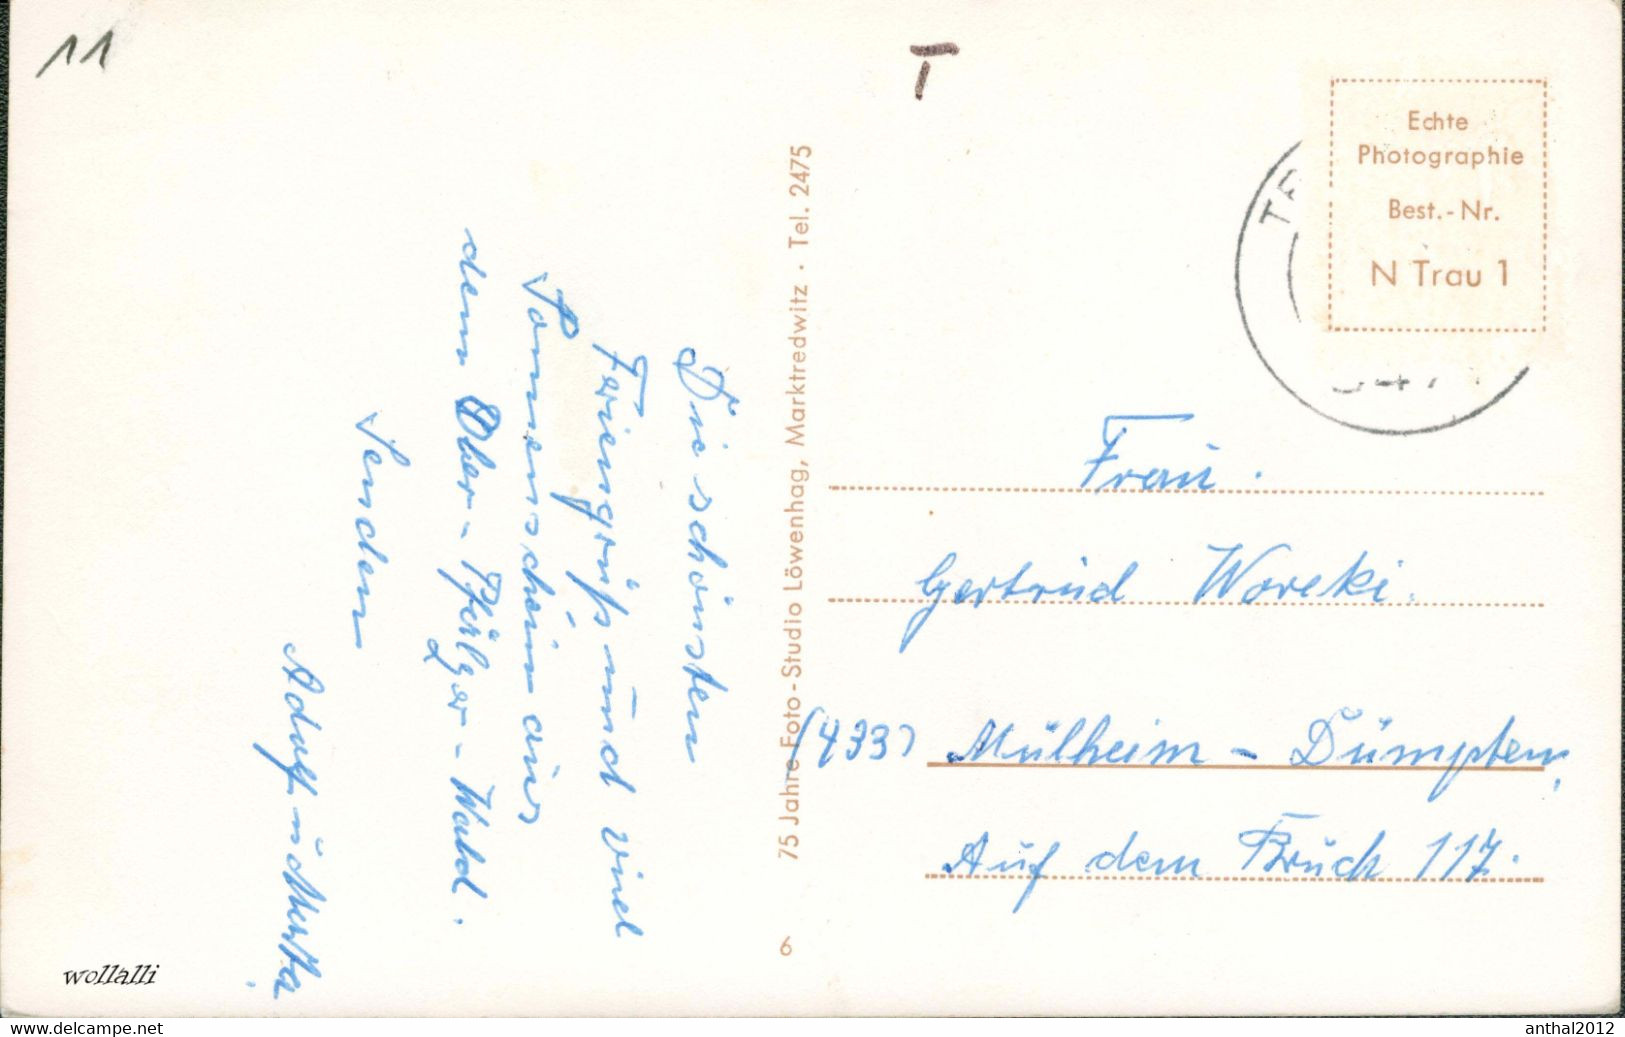 11
T
Echte
Photographie
Best.-Nr.
N Trau 1
Die schönsten
Feriengrüß und viel
Sonnenschein aus
dem Ober-Pfälzer-Wald.
Senden
Adolf u Martha
75 Jahre Foto-Studio Löwenhag, Marktredwitz · Tel. 2475
6
Frau.
Gertrud Woreki.
(433) Mülheim - Dümpten,
Auf dem Bruch 117.
wollalli
www.delcampe.net
anthal2012